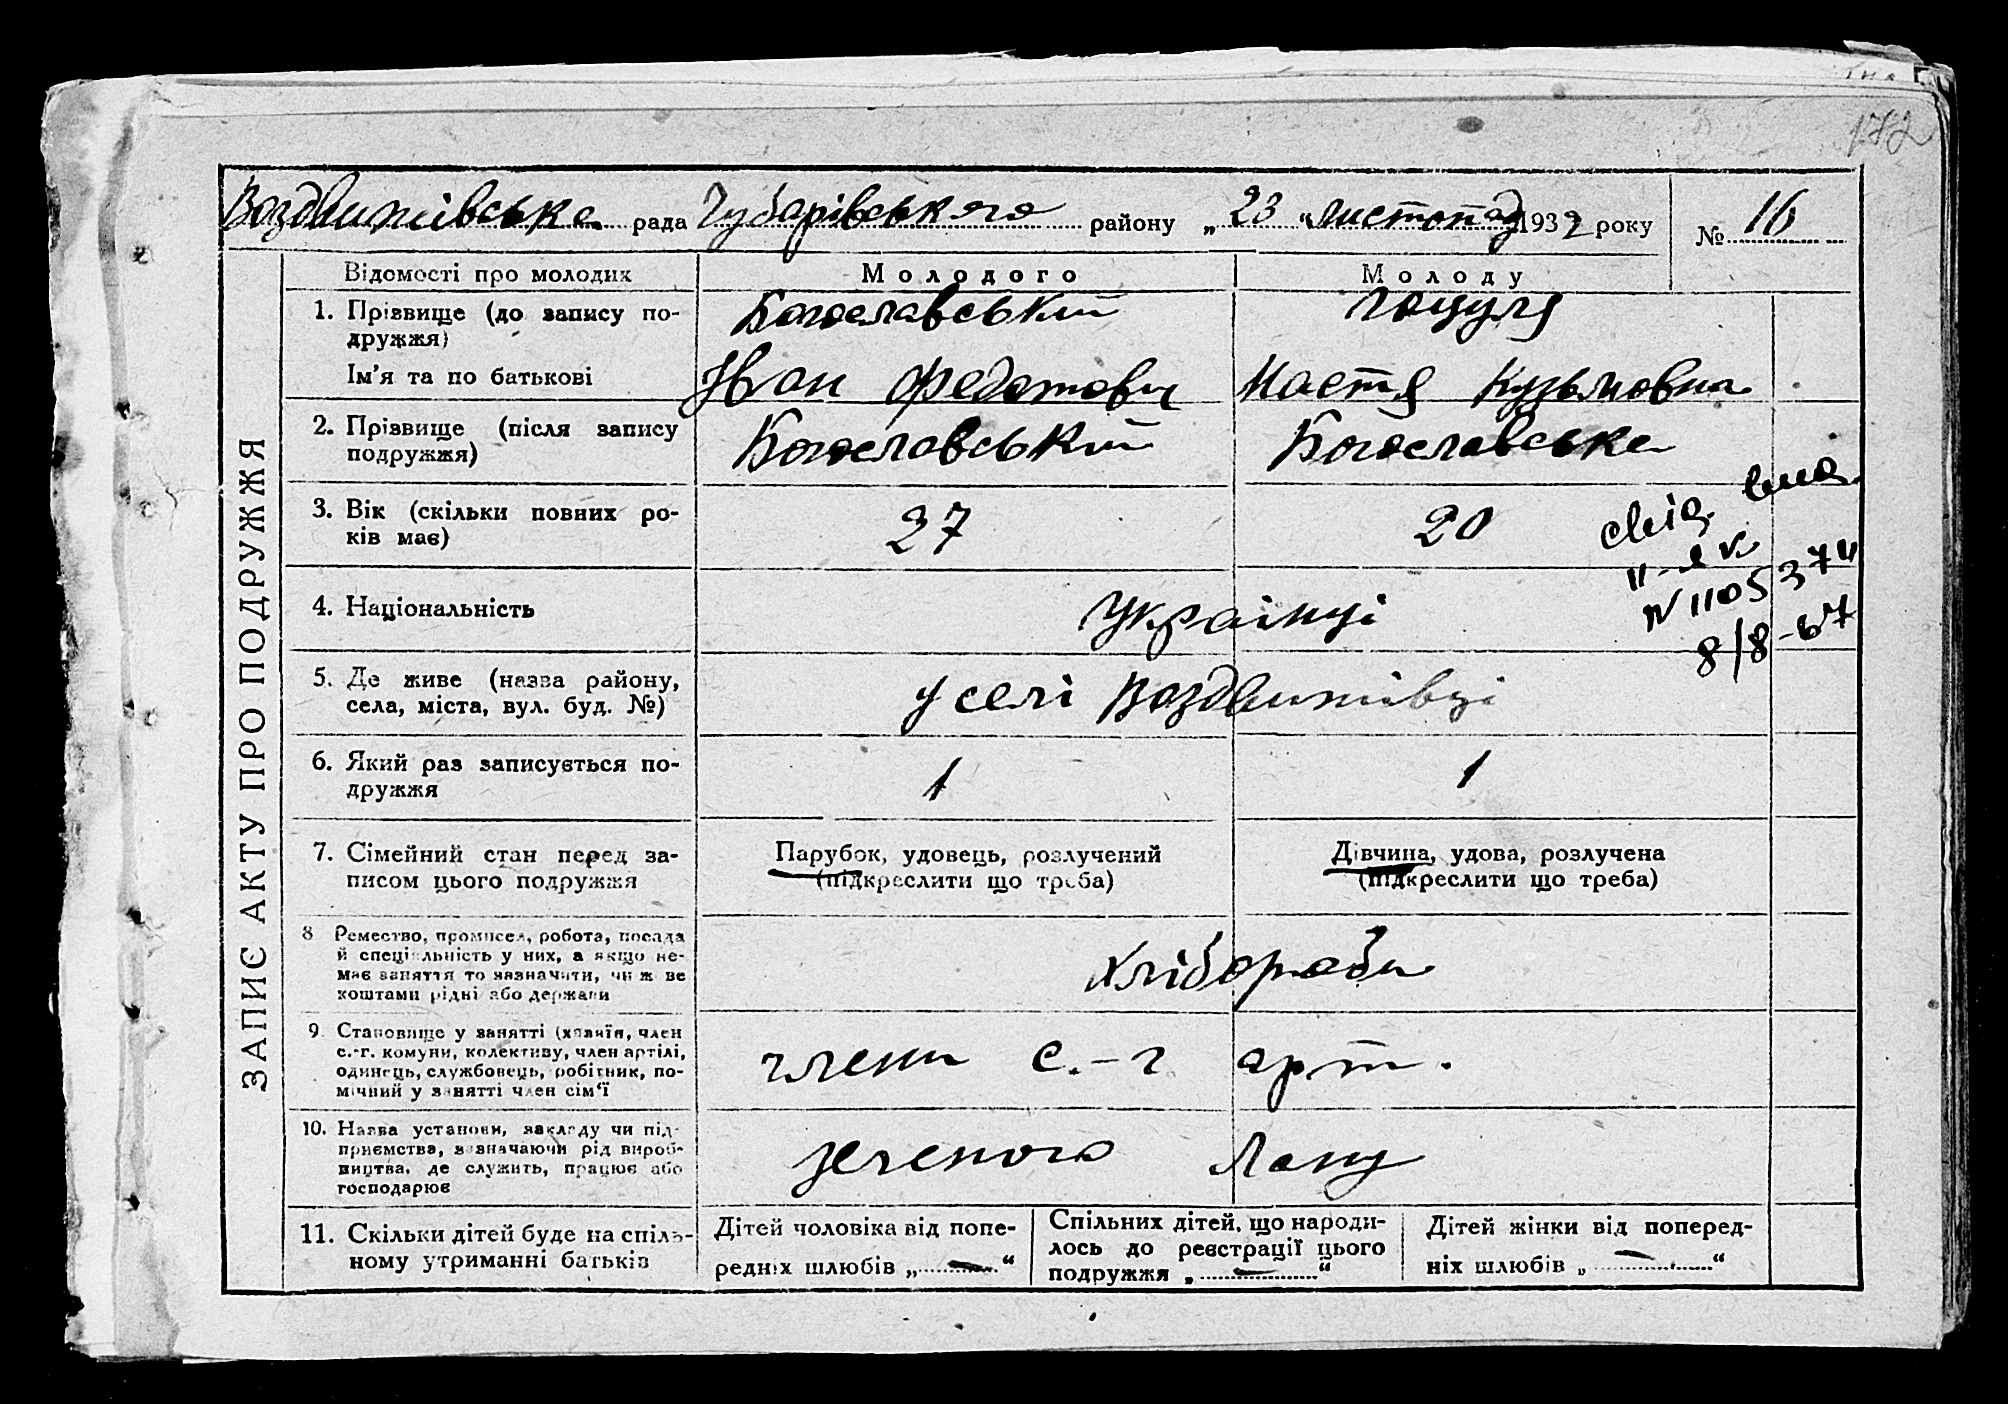 172
Воздвиживська рада Чубарівського району „23“ листопад 1932 року № 16
ЗАПИС АКТУ ПРО ПОДРУЖЖЯ
Відомості про молодих
Молодого
Молоду
1. Прізвище (до запису по-
дружжя)
Богославський
Гоцуля
Ім'я та по батькові
Іван Федотович
Настя Кузьмовна
2. Прізвище (після запису
подружжя)
Богославський
Богославська
3. Вік (скільки повних ро-
ків має)
27
20
свід. вид.
II-ЯК
N 1105374
8/8-67
4. Національність
Українці
5. Де живе (назва району,
села, міста, вул. буд. №)
у селі Воздвиживці
6. Який раз записується по-
дружжя
1
1
7. Сімейний стан перед за-
писом цього подружжя
Парубок, удовець, розлучений
(підкреслити що треба)
Дівчина, удова, розлучена
(підкреслити що треба)
8 Ремество, промисел, робота, посада
й спеціальність у них, а якщо не-
має заняття то зазначити, чи живе
коштами рідні або держави
Хлібороби
9. Становище у занятті (хазяїн, член
с.-г. комуни, колективу, член артілі,
одинець, службовець, робітник, по-
мічний у занятті член сім'ї
члени с.-г арт.
10. Назва установи, закладу чи під-
приємства, зазначаючи рід вироб-
ництва, де служить, працює або
господарює
зеленого Лану
11. Скільки дітей буде на спіль-
ному утриманні батьків
Дітей чоловіка від попе-
редніх шлюбів „—“
Спільних дітей, що народи-
лось до реєстрації цього
подружжя „—“
Дітей жінки від поперед-
ніх шлюбів „—“